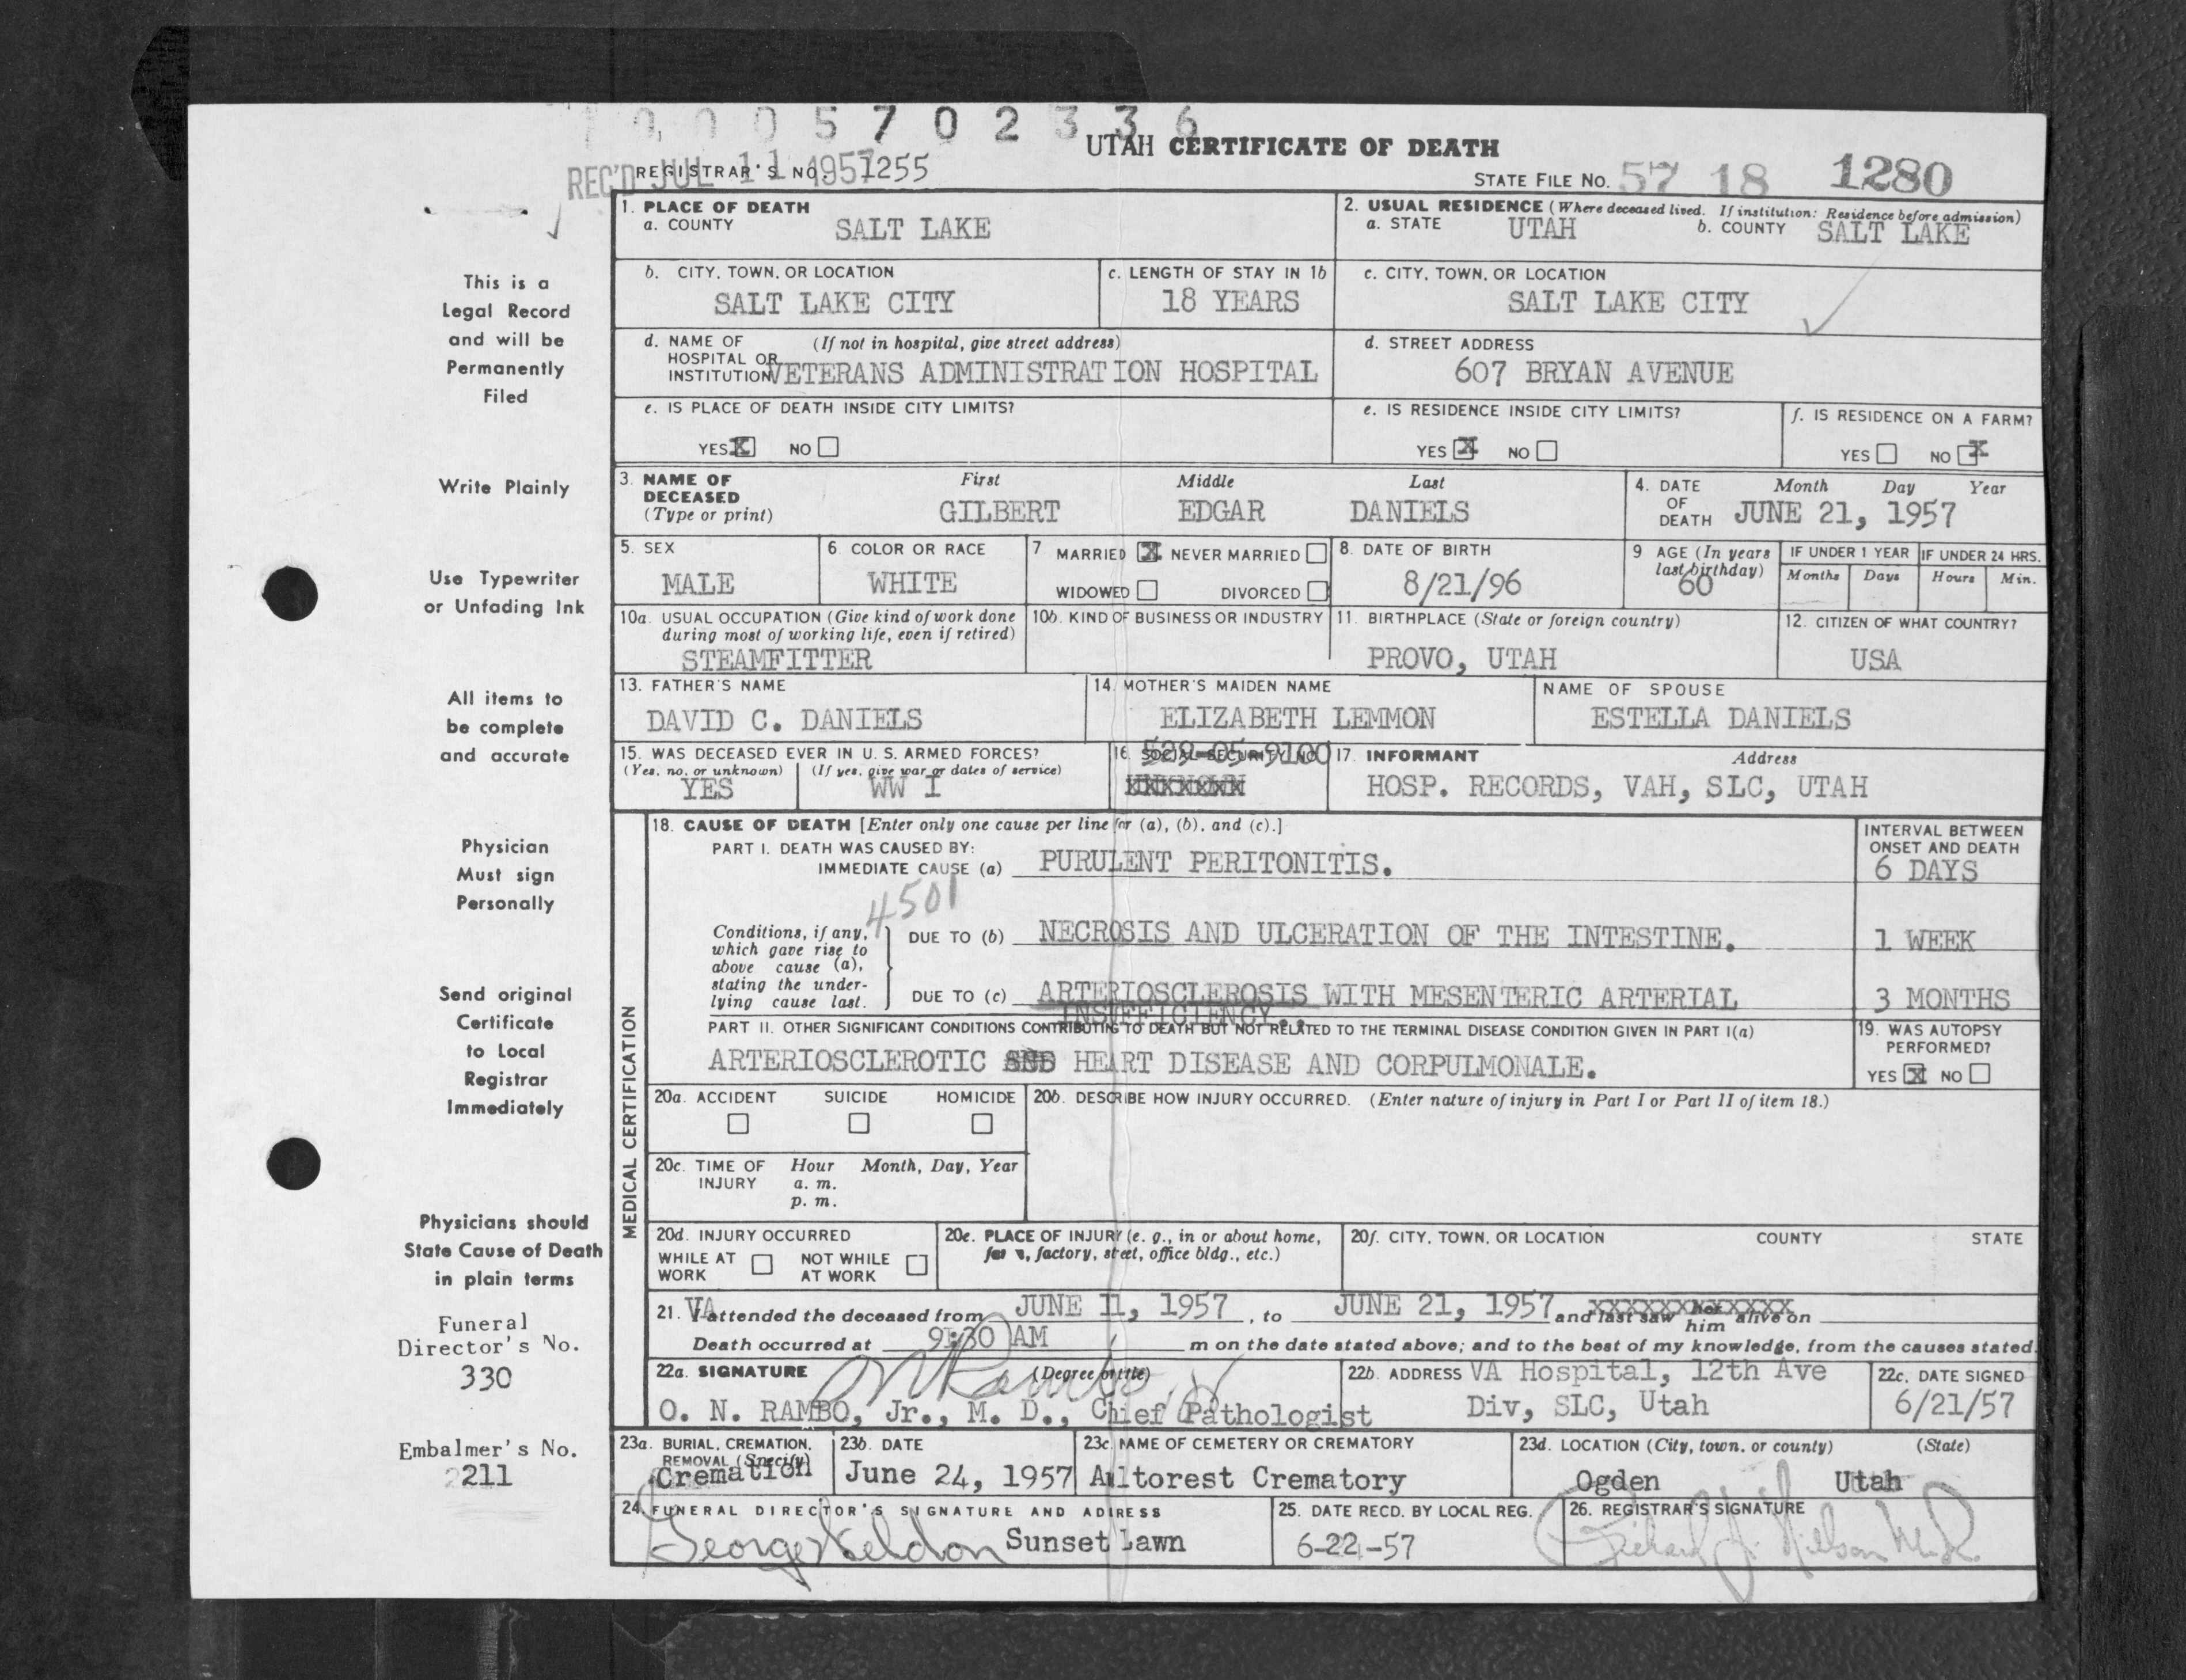 1 0 0 0 5 7 0 2 3 3 6
UTAH CERTIFICATE OF DEATH
REC'D JUL 11 1957
REGISTRAR'S NO. 1255
STATE FILE NO. 57 18 1280
1. PLACE OF DEATH
a. COUNTY SALT LAKE
2. USUAL RESIDENCE (Where deceased lived. If institution: Residence before admission)
a. STATE UTAH b. COUNTY SALT LAKE
b. CITY, TOWN, OR LOCATION
SALT LAKE CITY
c. LENGTH OF STAY IN 1b
18 YEARS
c. CITY, TOWN, OR LOCATION
SALT LAKE CITY
d. NAME OF (If not in hospital, give street address)
HOSPITAL OR
INSTITUTION VETERANS ADMINISTRATION HOSPITAL
d. STREET ADDRESS
607 BRYAN AVENUE
e. IS PLACE OF DEATH INSIDE CITY LIMITS?
YES X NO
e. IS RESIDENCE INSIDE CITY LIMITS?
YES X NO
f. IS RESIDENCE ON A FARM?
YES NO X
3. NAME OF DECEASED (Type or print)
First Middle Last
GILBERT EDGAR DANIELS
4. DATE OF DEATH
Month Day Year
JUNE 21, 1957
5. SEX
MALE
6. COLOR OR RACE
WHITE
7. MARRIED X NEVER MARRIED
WIDOWED DIVORCED
8. DATE OF BIRTH
8/21/96
9 AGE (In years last birthday)
60
IF UNDER 1 YEAR
Months Days
IF UNDER 24 HRS.
Hours Min.
10a. USUAL OCCUPATION (Give kind of work done
during most of working life, even if retired)
STEAMFITTER
10b. KIND OF BUSINESS OR INDUSTRY
11. BIRTHPLACE (State or foreign country)
PROVO, UTAH
12. CITIZEN OF WHAT COUNTRY?
USA
13. FATHER'S NAME
DAVID C. DANIELS
14. MOTHER'S MAIDEN NAME
ELIZABETH LEMMON
NAME OF SPOUSE
ESTELLA DANIELS
15. WAS DECEASED EVER IN U. S. ARMED FORCES?
(Yes, no, or unknown) (If yes, give war or dates of service)
YES WW I
16. SOCIAL SECURITY NO.
529-05-9100
17. INFORMANT Address
HOSP. RECORDS, VAH, SLC, UTAH
MEDICAL CERTIFICATION
18. CAUSE OF DEATH [Enter only one cause per line for (a), (b), and (c).]
INTERVAL BETWEEN
ONSET AND DEATH
PART I. DEATH WAS CAUSED BY:
IMMEDIATE CAUSE (a) PURULENT PERITONITIS.
6 DAYS
4501
Conditions, if any,
which gave rise to
above cause (a),
stating the under-
lying cause last.
DUE TO (b) NECROSIS AND ULCERATION OF THE INTESTINE.
1 WEEK
DUE TO (c) ARTERIOSCLEROSIS WITH MESENTERIC ARTERIAL
INSUFFICIENCY..
3 MONTHS
PART II. OTHER SIGNIFICANT CONDITIONS CONTRIBUTING TO DEATH BUT NOT RELATED TO THE TERMINAL DISEASE CONDITION GIVEN IN PART I(a)
ARTERIOSCLEROTIC HEART DISEASE AND CORPULMONALE.
19. WAS AUTOPSY
PERFORMED?
YES X NO
20a. ACCIDENT SUICIDE HOMICIDE
20b. DESCRIBE HOW INJURY OCCURRED. (Enter nature of injury in Part I or Part II of item 18.)
20c. TIME OF INJURY
Hour Month, Day, Year
a. m.
p. m.
20d. INJURY OCCURRED
WHILE AT WORK NOT WHILE AT WORK
20e. PLACE OF INJURY (e. g., in or about home,
farm, factory, street, office bldg., etc.)
20f. CITY, TOWN, OR LOCATION COUNTY STATE
21. VA attended the deceased from JUNE 11, 1957, to JUNE 21, 1957 and last saw her him alive on
Death occurred at 9:30 AM m on the date stated above; and to the best of my knowledge, from the causes stated.
22a. SIGNATURE (Degree or title)
O. N. RAMBO, Jr., M. D., Chief Pathologist
22b. ADDRESS VA Hospital, 12th Ave
Div, SLC, Utah
22c. DATE SIGNED
6/21/57
23a. BURIAL, CREMATION,
REMOVAL (Specify)
Cremation
23b. DATE
June 24, 1957
23c. NAME OF CEMETERY OR CREMATORY
Aultorest Crematory
23d. LOCATION (City, town, or county) (State)
Ogden Utah
24. FUNERAL DIRECTOR'S SIGNATURE AND ADDRESS
George Seldon Sunset Lawn
25. DATE RECD. BY LOCAL REG.
6-22-57
26. REGISTRAR'S SIGNATURE
This is a
Legal Record
and will be
Permanently
Filed
Write Plainly
Use Typewriter
or Unfading Ink
All items to
be complete
and accurate
Physician
Must sign
Personally
Send original
Certificate
to Local
Registrar
Immediately
Physicians should
State Cause of Death
in plain terms
Funeral
Director's No.
330
Embalmer's No.
211